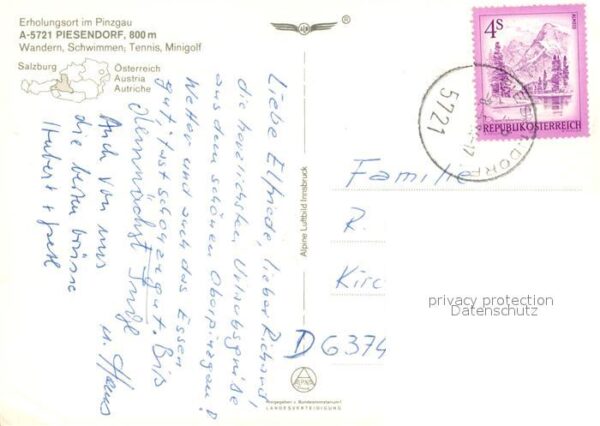 Erholungsort im Pinzgau
A-5721 PIESENDORF, 800 m
Wandern, Schwimmen, Tennis, Minigolf
Salzburg
Österreich
Austria
Autriche
Liebe Elfriede, lieber Richard!
die herzlichsten Urlaubsgrüße
aus dem schönen Oberpinzgau!
Wetter und auch das Essen
gut, fast schon zu gut. Bis
demnächst Inge
u. Hans
Auch von uns
die besten Grüsse
Hubert +
Alpine Luftbild Innsbruck
ALPINE
Freigegeben v. Bundesministerium f.
LANDESVERTEIDIGUNG
4S
REPUBLIK ÖSTERREICH
PIESENDORF
5721
Familie
R.
Kirc
D 6374
privacy protection
Datenschutz